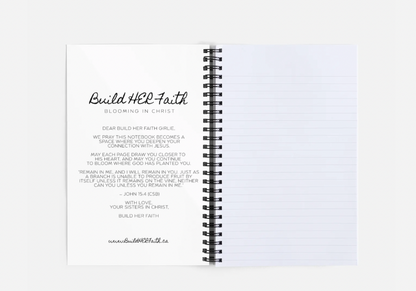 Build HER Faith
BLOOMING IN CHRIST
DEAR BUILD HER FAITH GIRLIE,
WE PRAY THIS NOTEBOOK BECOMES A
SPACE WHERE YOU DEEPEN YOUR
CONNECTION WITH JESUS.
MAY EACH PAGE DRAW YOU CLOSER TO
HIS HEART, AND MAY YOU CONTINUE
TO BLOOM WHERE GOD HAS PLANTED YOU.
"REMAIN IN ME, AND I WILL REMAIN IN YOU. JUST AS
A BRANCH IS UNABLE TO PRODUCE FRUIT BY
ITSELF UNLESS IT REMAINS ON THE VINE, NEITHER
CAN YOU UNLESS YOU REMAIN IN ME."
- JOHN 15:4 (CSB)
WITH LOVE,
YOUR SISTERS IN CHRIST,
BUILD HER FAITH